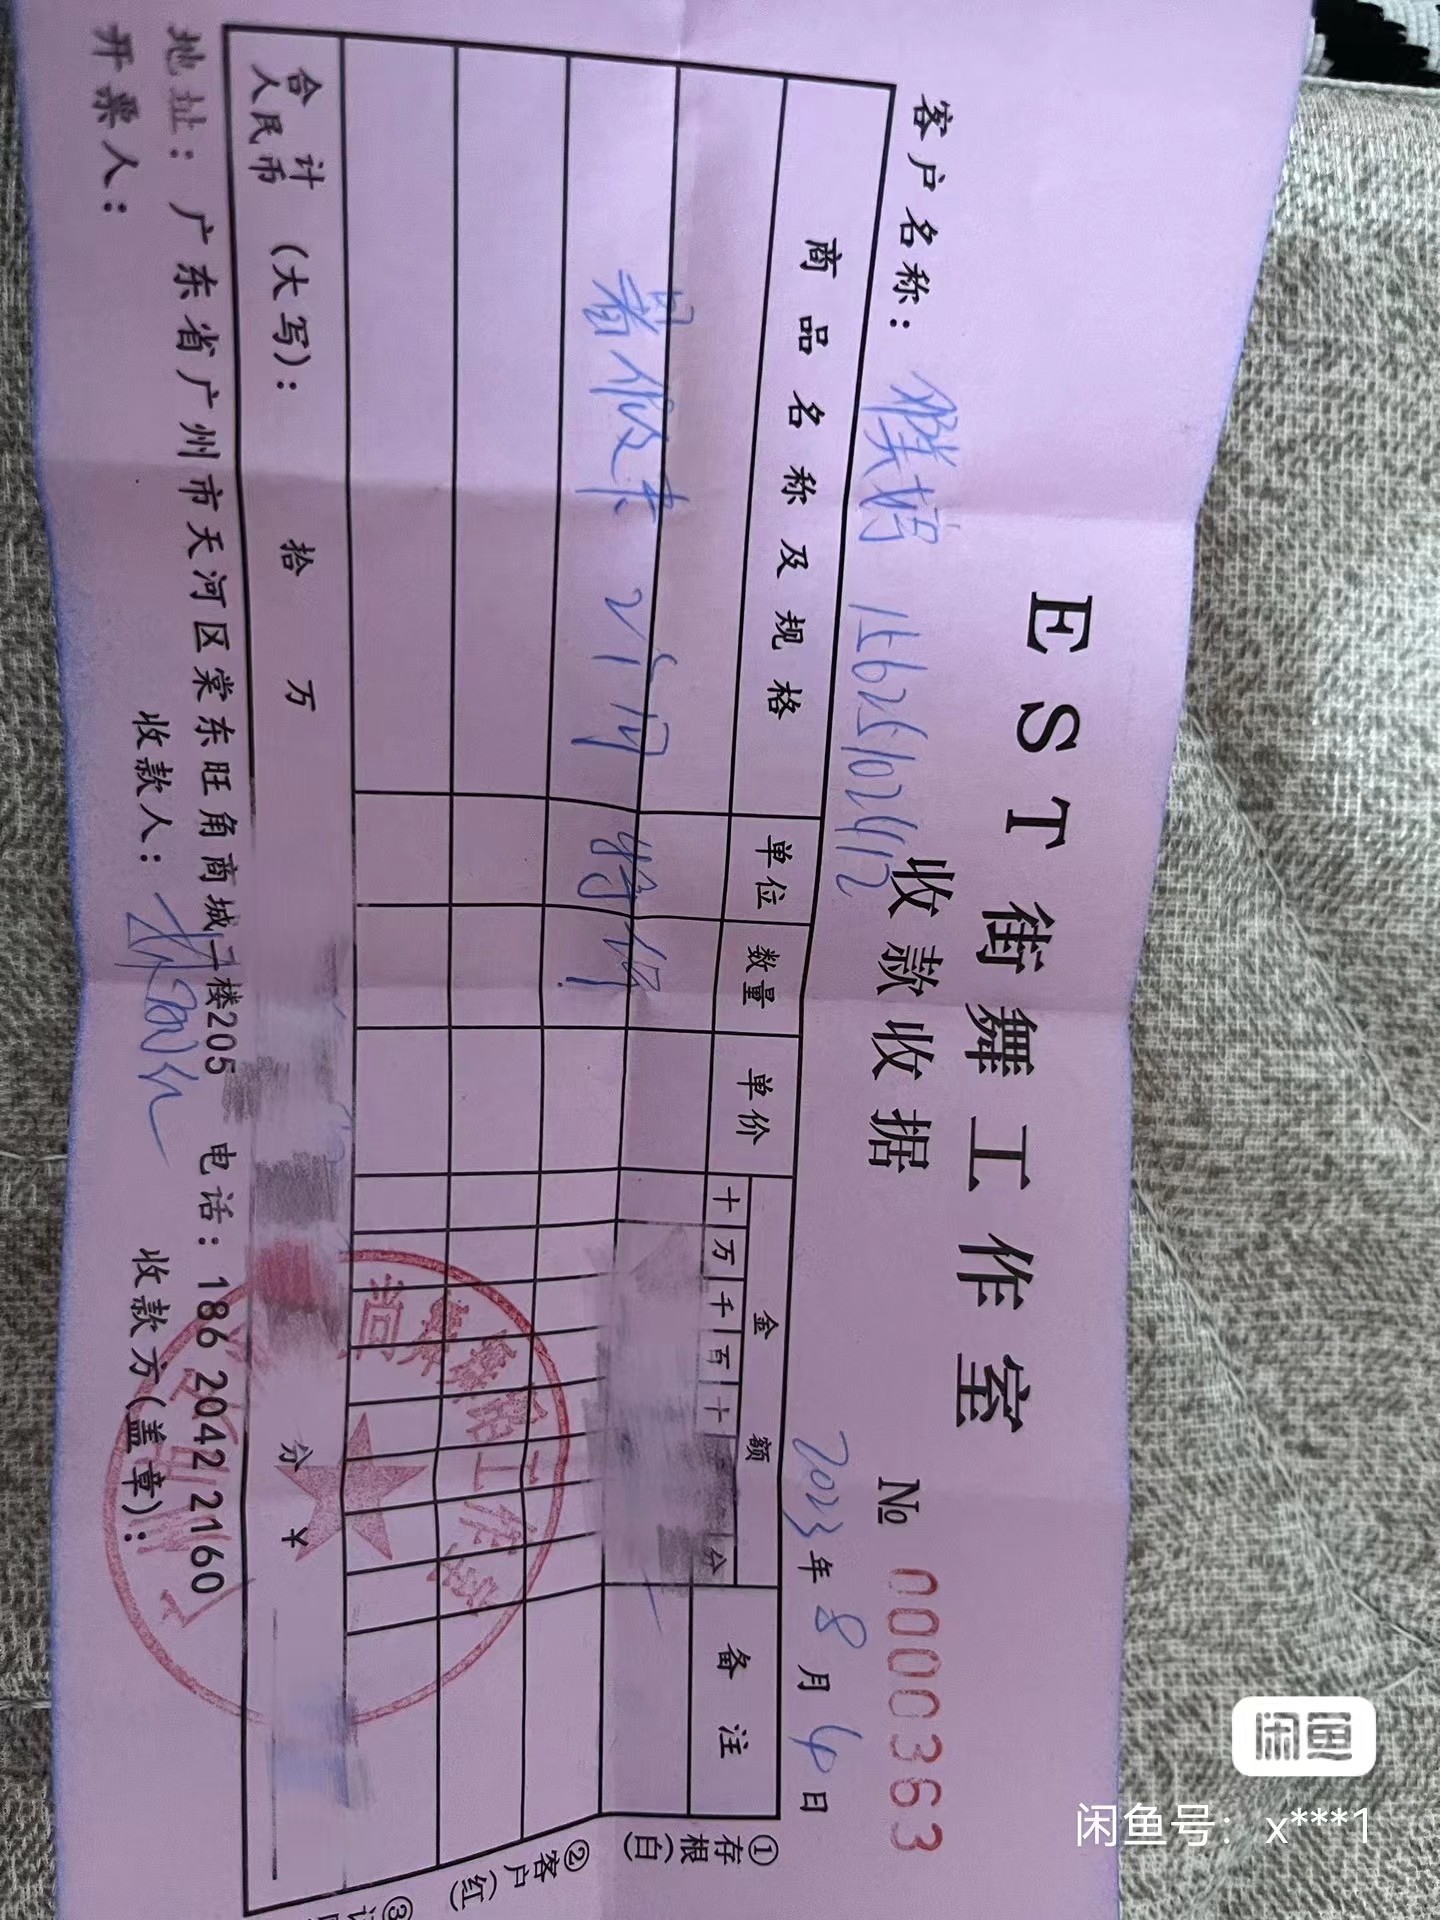 EST街舞工作室
收款收据
№ 0000363
客户名称： 15625102412 2023年8月4日
商品名称及规格 单位 数量 单价 金额 备注
十 万 千 百 十 分
暑假卡 2个月 特价！
合计人民币（大写）： 拾 万 分 ¥
地址：广东省广州市天河区棠东旺角商城二楼205 电话：186 2042 2160
开票人： 收款人： 收款方(盖章)：
①存根(白)
②客户(红)
③
闲鱼
闲鱼号：x***1